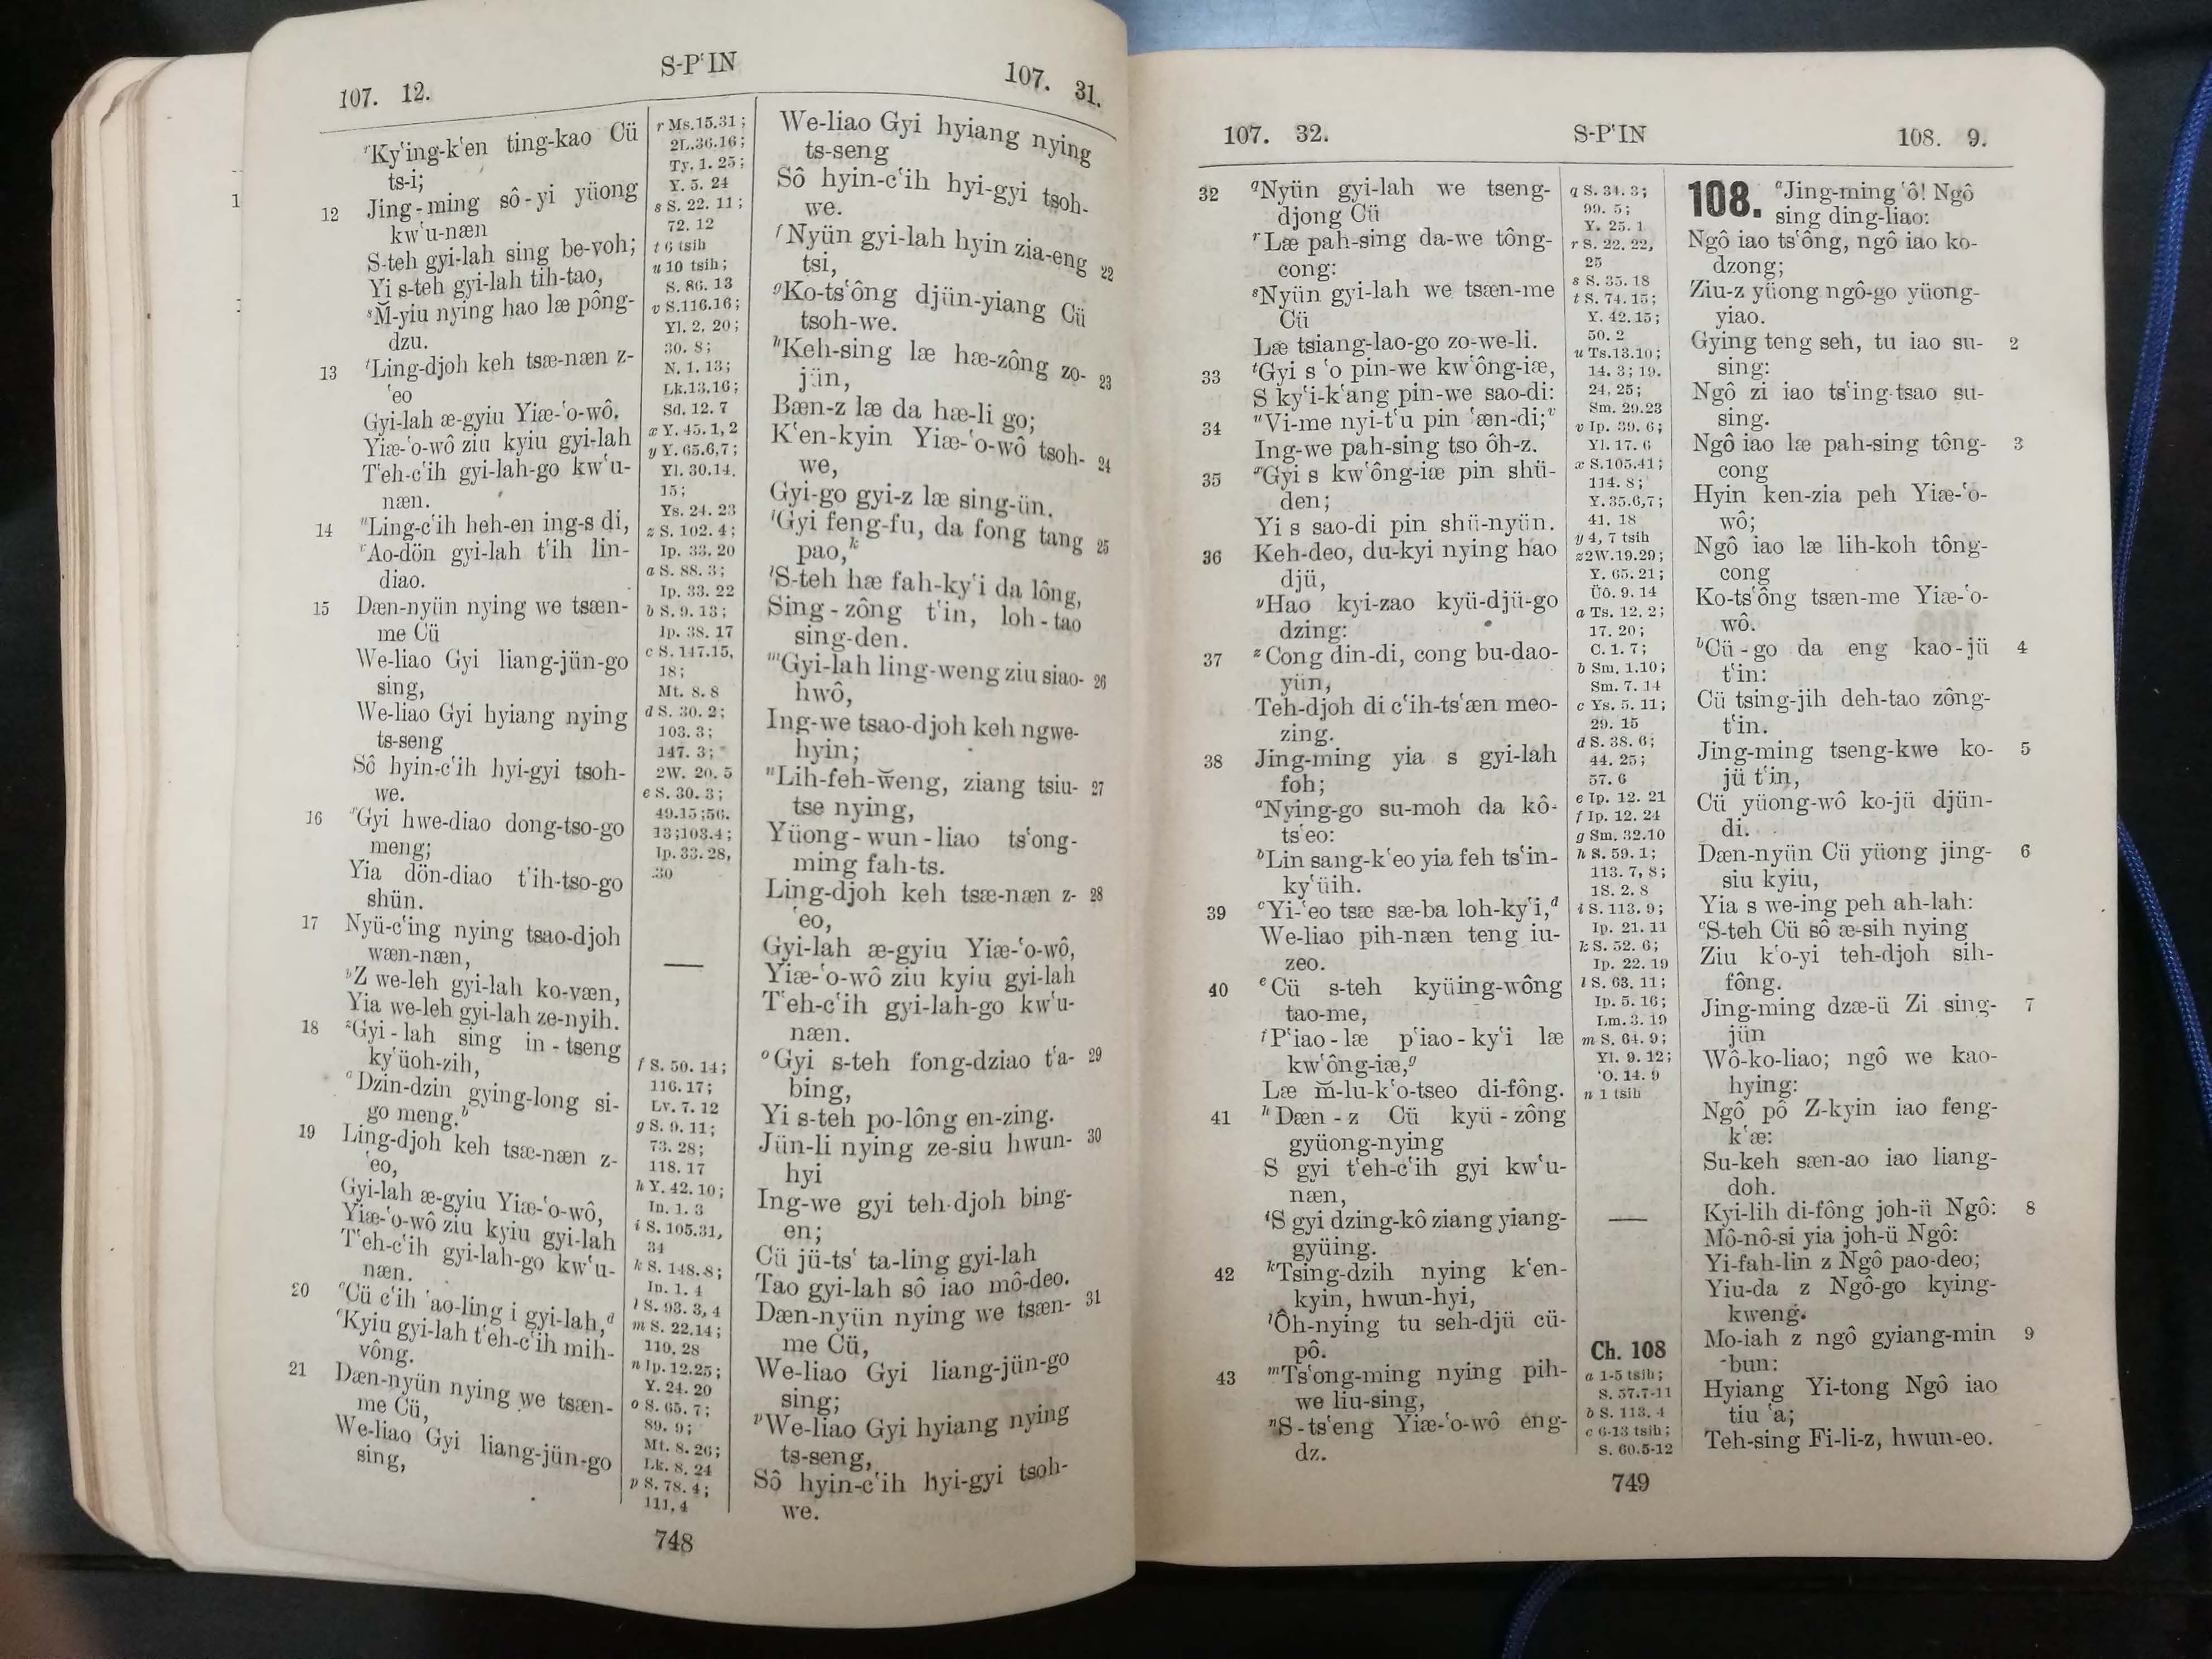 107. 12.
S-PʻIN
107. 31.
ʳKyʻing-kʻen ting-kao Cü
ts-i;
12 Jing-ming sô-yi yüong
kwʻu-næn
S-teh gyi-lah sing be-voh;
Yi s-teh gyi-lah tih-tao,
ˢM̆-yiu nying hao læ pông-
dzu.
13 ᵗLing-djoh keh tsæ-næn z-
ʻeo
Gyi-lah æ-gyiu Yiæ-ʻo-wô,
Yiæ-ʻo-wô ziu kyiu gyi-lah
Tʻeh-cʻih gyi-lah-go kwʻu-
næn.
14 ᵘLing-cʻih heh-en ing-s di,
ᵛAo-dön gyi-lah tʻih lin-
diao.
15 Dæn-nyün nying we tsæn-
me Cü
We-liao Gyi liang-jün-go
sing,
We-liao Gyi hyiang nying
ts-seng
Sô hyin-cʻih hyi-gyi tsoh-
we.
16 ˣGyi hwe-diao dong-tso-go
meng;
Yia dön-diao tʻih-tso-go
shün.
17 Nyü-cʻing nying tsao-djoh
wæn-næn,
ʸZ we-leh gyi-lah ko-væn,
Yia we-leh gyi-lah ze-nyih.
18 ᶻGyi-lah sing in-tseng
kyʻüoh-zih,
ᵃDzin-dzin gying-long si-
go meng.ᵇ
19 Ling-djoh keh tsæ-næn z-
ʻeo,
Gyi-lah æ-gyiu Yiæ-ʻo-wô,
Yiæ-ʻo-wô ziu kyiu gyi-lah
Tʻeh-cʻih gyi-lah-go kwʻu-
næn.
20 ᶜCü cʻih ʻao-ling i gyi-lah,ᵈ
ᵉKyiu gyi-lah tʻeh-cʻih mih-
vông.
21 Dæn-nyün nying we tsæn-
me Cü,
We-liao Gyi liang-jün-go
sing,
r Ms.15.31;
2L.36.16;
Ty. 1. 25;
Y. 5. 24
s S. 22. 11;
72. 12
t 6 tsih
u 10 tsih;
S. 86. 13
v S.116.16;
Yl. 2. 20;
30. 8;
N. 1. 13;
Lk.13.16;
Sd. 12. 7
x Y. 45. 1, 2
y Y. 65.6,7;
Yl. 30.14,
15;
Ys. 24. 23
z S. 102. 4;
Ip. 33. 20
a S. 88. 3;
Ip. 33. 22
b S. 9. 13;
Ip. 38. 17
c S. 147.15,
18;
Mt. 8. 8
d S. 30. 2;
103. 3;
147. 3;
2W. 20. 5
e S. 30. 3;
49.15;56.
13;103.4;
Ip. 33. 28,
30
f S. 50. 14;
116. 17;
Lv. 7. 12
g S. 9. 11;
73. 28;
118. 17
h Y. 42. 10;
In. 1. 3
i S. 105.31,
34
k S. 148.8;
In. 1. 4
l S. 93. 3, 4
m S. 22.14;
119. 28
n Ip. 12.25;
Y. 24. 20
o S. 65. 7;
89. 9;
Mt. 8. 26;
Lk. 8. 24
p S. 78. 4;
111. 4
We-liao Gyi hyiang nying
ts-seng
Sô hyin-cʻih hyi-gyi tsoh-
we.
ᶠNyün gyi-lah hyin zia-eng 22
tsi,
ᵍKo-tsʻông djün-yiang Cü
tsoh-we.
ʰKeh-sing læ hæ-zông zo- 23
jün,
Bæn-z læ da hæ-li go;
Kʻen-kyin Yiæ-ʻo-wô tsoh- 24
we,
Gyi-go gyi-z læ sing-ün.
ⁱGyi feng-fu, da fong tang 25
pao,ᵏ
ˡS-teh hæ fah-kyʻi da lông,
Sing-zông tʻin, loh-tao
sing-den.
ᵐGyi-lah ling-weng ziu siao- 26
hwô,
Ing-we tsao-djoh keh ngwe-
hyin;
ⁿLih-feh-w̆eng, ziang tsiu- 27
tse nying,
Yüong-wun-liao tsʻong-
ming fah-ts.
Ling-djoh keh tsæ-næn z- 28
ʻeo,
Gyi-lah æ-gyiu Yiæ-ʻo-wô,
Yiæ-ʻo-wô ziu kyiu gyi-lah
Tʻeh-cʻih gyi-lah-go kwʻu-
næn.
ᵒGyi s-teh fong-dziao tʻa- 29
bing,
Yi s-teh po-lông en-zing.
Jün-li nying ze-siu hwun- 30
hyi
Ing-we gyi teh-djoh bing-
en;
Cü jü-tsʻ ta-ling gyi-lah
Tao gyi-lah sô iao mô-deo.
Dæn-nyün nying we tsæn- 31
me Cü,
We-liao Gyi liang-jün-go
sing;
ᵖWe-liao Gyi hyiang nying
ts-seng,
Sô hyin-cʻih hyi-gyi tsoh-
we.
748
107. 32.
S-PʻIN
108. 9.
32 ᵠNyün gyi-lah we tseng-
djong Cü
ʳLæ pah-sing da-we tông-
cong:
ˢNyün gyi-lah we tsæn-me
Cü
Læ tsiang-lao-go zo-we-li.
33 ᵗGyi s ʻo pin-we kwʻông-iæ,
S kyʻi-kʻang pin-we sao-di:
34 ᵘVi-me nyi-tʻu pin ʻæn-di;ᵛ
Ing-we pah-sing tso ôh-z.
35 ˣGyi s kwʻông-iæ pin shü-
den;
Yi s sao-di pin shü-nyün.
36 Keh-deo, du-kyi nying hao
djü,
ʸHao kyi-zao kyü-djü-go
dzing:
37 ᶻCong din-di, cong bu-dao-
yün,
Teh-djoh di cʻih-tsʻæn meo-
zing.
38 Jing-ming yia s gyi-lah
foh;
ᵃNying-go su-moh da kô-
tsʻeo:
ᵇLin sang-kʻeo yia feh tsʻin-
kyʻüih.
39 ᶜYi-ʻeo tsæ sæ-ba loh-kyʻi,ᵈ
We-liao pih-næn teng iu-
zeo.
40 ᵉCü s-teh kyüing-wông
tao-me,
ᶠPʻiao-læ pʻiao-kyʻi læ
kwʻông-iæ,ᵍ
Læ m̆-lu-kʻo-tseo di-fông.
41 ʰDæn-z Cü kyü-zông
gyüong-nying
S gyi tʻeh-cʻih gyi kwʻu-
næn,
ⁱS gyi dzing-kô ziang yiang-
gyüing.
42 ᵏTsing-dzih nying kʻen-
kyin, hwun-hyi,
ˡÔh-nying tu seh-djü cü-
pô.
43 ᵐTsʻong-ming nying pih-
we liu-sing,
ⁿS-tsʻeng Yiæ-ʻo-wô eng-
dz.
q S. 34. 3;
99. 5;
Y. 25. 1
r S. 22. 22,
25
s S. 35. 18
t S. 74. 15;
Y. 42. 15;
50. 2
u Ts.13.10;
14. 3; 19.
24, 25;
Sm. 29.23
v Ip. 39. 6;
Yl. 17. 6
x S.105.41;
114. 8;
Y.35.6,7;
41. 18
y 4, 7 tsih
z2W.19.29;
Y. 65. 21;
Üô. 9. 14
a Ts. 12. 2;
17. 20;
C. 1. 7;
b Sm. 1.10;
Sm. 7. 14
c Ys. 5. 11;
29. 15
d S. 38. 6;
44. 25;
57. 6
e Ip. 12. 21
f Ip. 12. 24
g Sm. 32.10
h S. 59. 1;
113. 7, 8;
1S. 2. 8
i S. 113. 9;
Ip. 21. 11
k S. 52. 6;
Ip. 22. 19
l S. 63. 11;
Ip. 5. 16;
Lm. 3. 19
m S. 64. 9;
Yl. 9. 12;
ʻO. 14. 9
n 1 tsih
Ch. 108
a 1-5 tsih;
S. 57.7-11
b S. 113. 4
c 6-13 tsih;
S. 60.5-12
108. ᵃJing-ming ʻô! Ngô
sing ding-liao:
Ngô iao tsʻông, ngô iao ko-
dzong;
Ziu-z yüong ngô-go yüong-
yiao.
Gying teng seh, tu iao su- 2
sing:
Ngô zi iao tsʻing-tsao su-
sing.
Ngô iao læ pah-sing tông- 3
cong
Hyin ken-zia peh Yiæ-ʻo-
wô;
Ngô iao læ lih-koh tông-
cong
Ko-tsʻông tsæn-me Yiæ-ʻo-
wô.
ᵇCü-go da eng kao-jü 4
tʻin:
Cü tsing-jih deh-tao zông-
tʻin.
Jing-ming tseng-kwe ko- 5
jü tʻin,
Cü yüong-wô ko-jü djün-
di.
Dæn-nyün Cü yüong jing- 6
siu kyiu,
Yia s we-ing peh ah-lah:
ᶜS-teh Cü sô æ-sih nying
Ziu kʻo-yi teh-djoh sih-
fông.
Jing-ming dzæ-ü Zi sing- 7
jün
Wô-ko-liao; ngô we kao-
hying:
Ngô pô Z-kyin iao feng-
kʻæ:
Su-keh sæn-ao iao liang-
doh.
Kyi-lih di-fông joh-ü Ngô: 8
Mô-nô-si yia joh-ü Ngô:
Yi-fah-lin z Ngô pao-deo;
Yiu-da z Ngô-go kying-
kweng.
Mo-iah z ngô gyiang-min 9
-bun:
Hyiang Yi-tong Ngô iao
tiu ʻa;
Teh-sing Fi-li-z, hwun-eo.
749